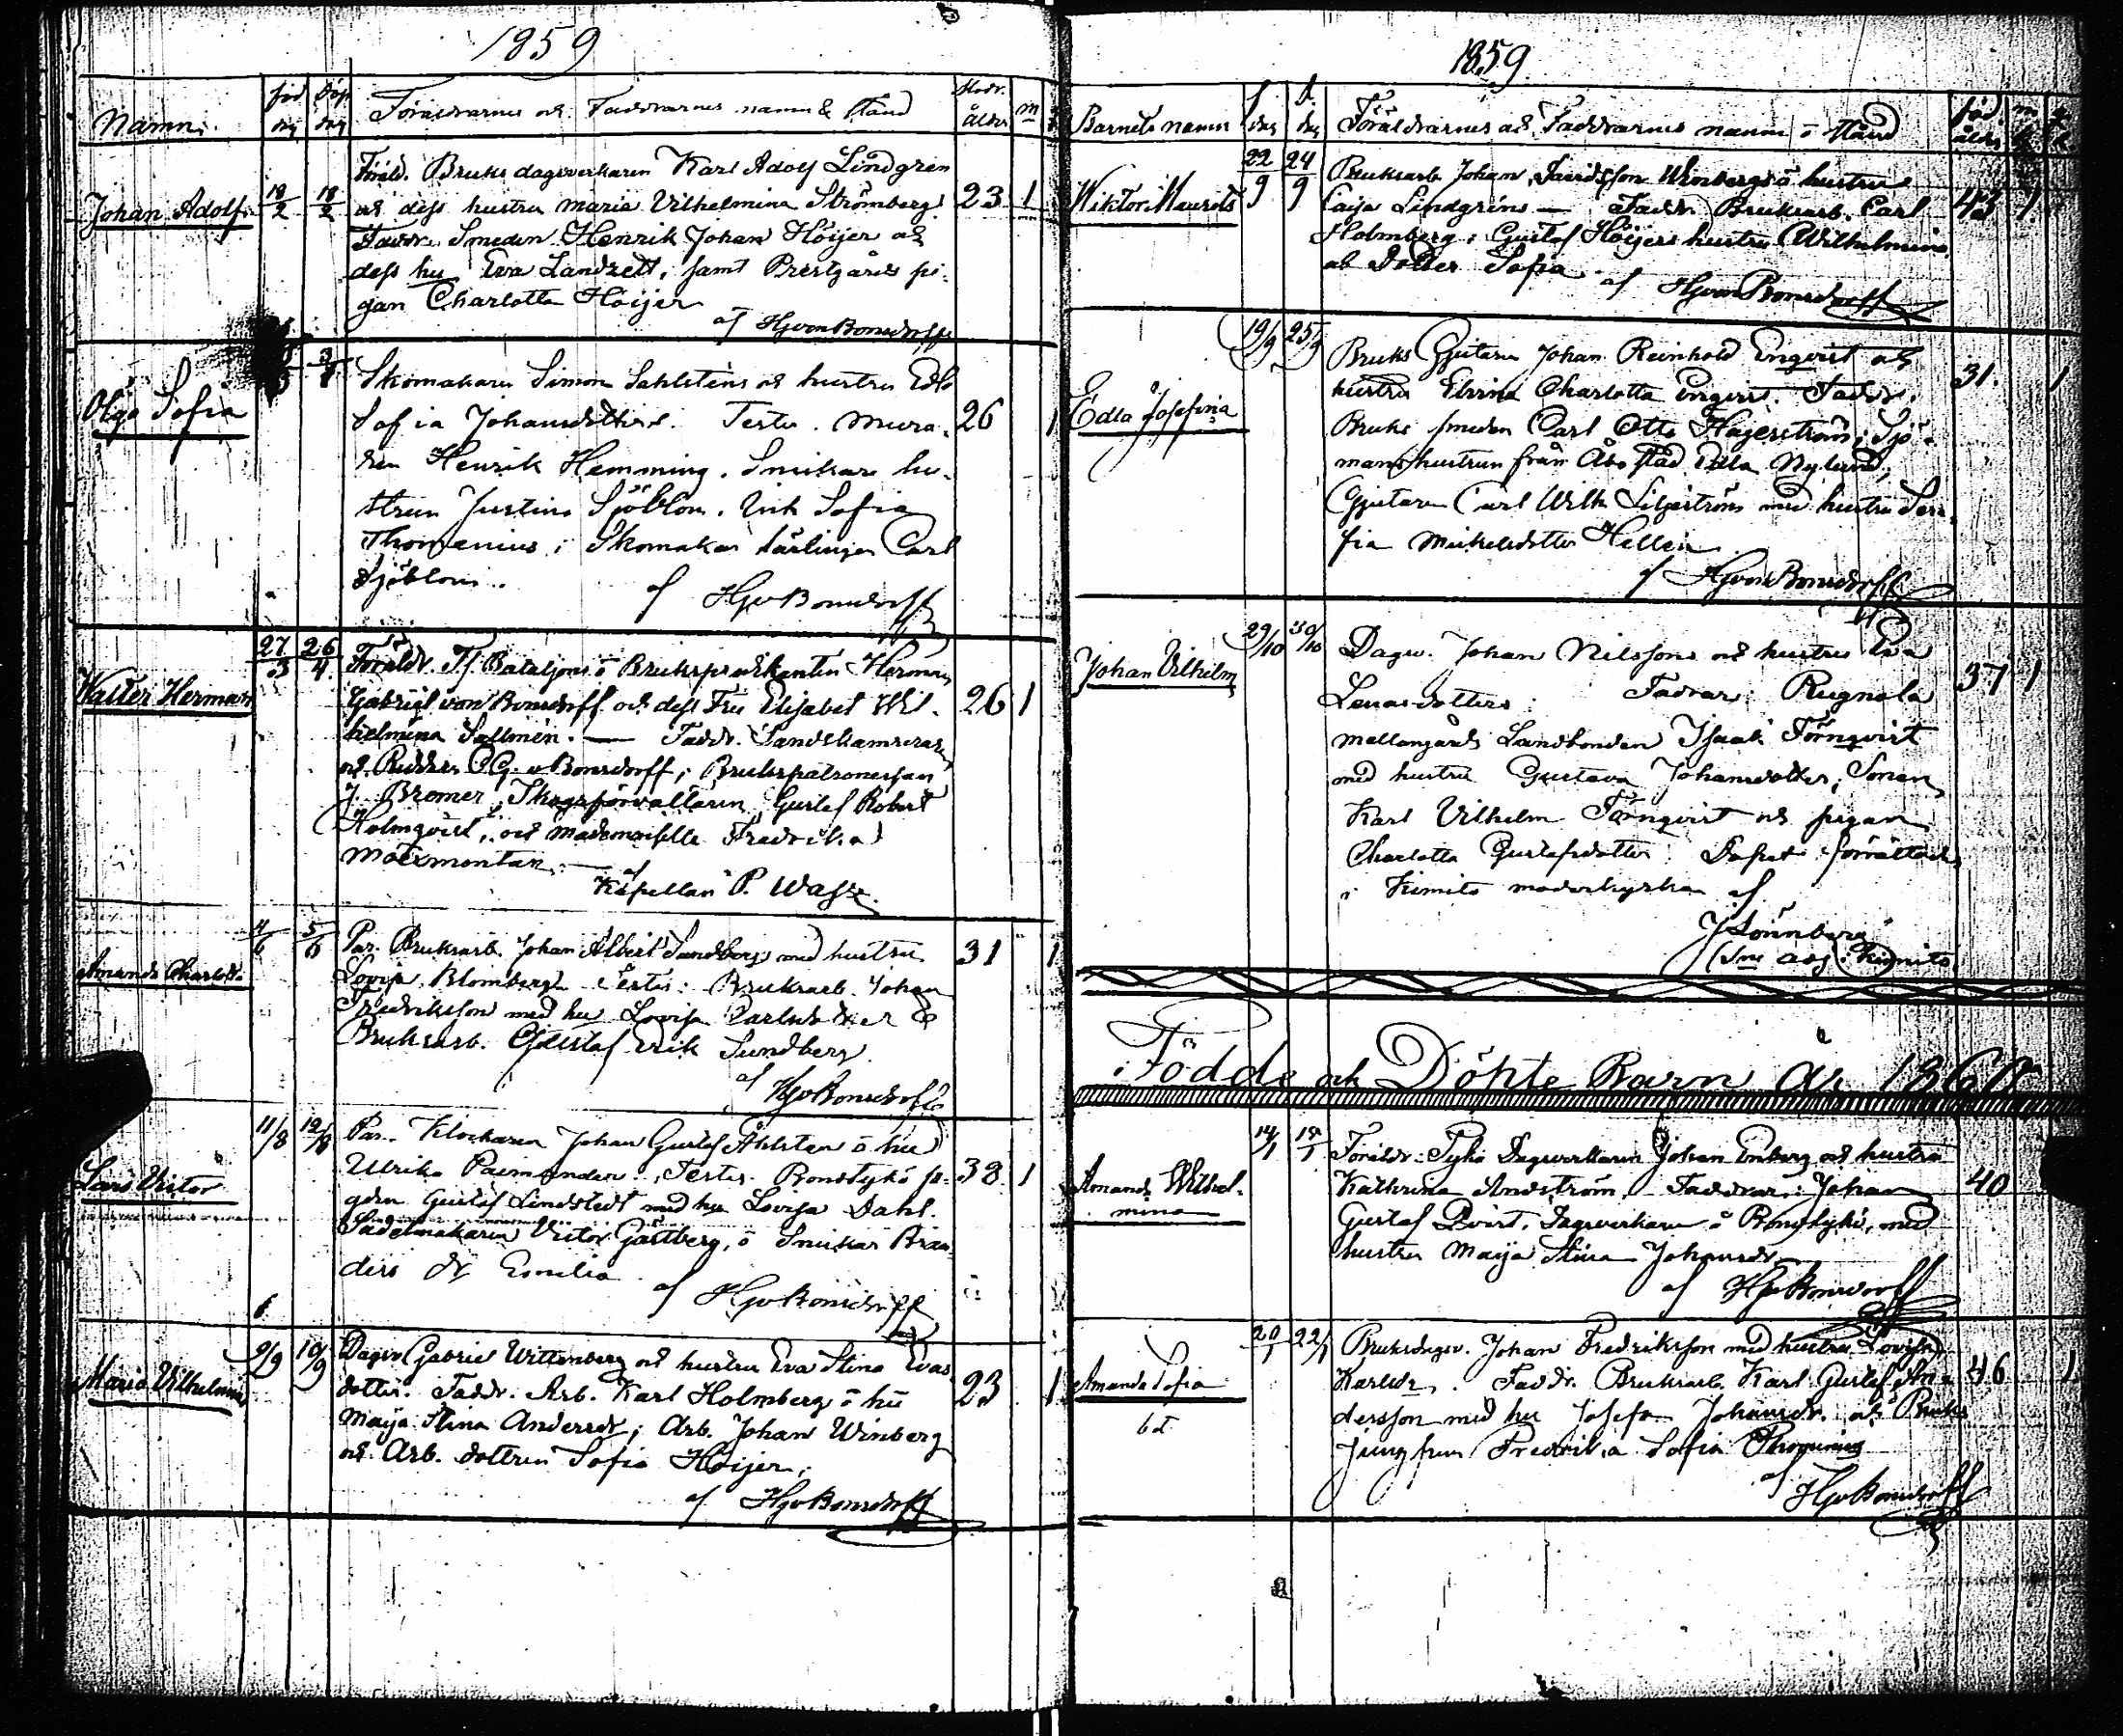 1859
Namn. föd dag Döp dag Föräldrarnes och Faddrarnes namn & stånd Modr. ålder m
Föräld. Bruks dagsverkaren Karl Adolf Lindgren
Johan Adolf 18/2 18/2 och dess hustru Maria Vilhelmina Strömberg. 23 1
Faddr. Smeden Henrik Johan Höijer och
dess hu Eva Landzett, samt Prestgårds pi-
gan Charlotta Höijer
af HGvonBonsdorff
Skomakaren Simon Sahlstens och hustru Edla
Olga Sofia Sofia Johansdotters. Testes. Mura- 26 1
ren Henrik Hemming. Snickare hu-
strun Justina Sjöblom. Enk. Sofia
Thomenius; Skomakar lärlingen Carl
Sjöblom.
af HGvBonsdorff
27/3 26/4 Föräldr. Tf. Bataljons o Brukspredikanten Herman
Walter Herman Gabriel von Bonsdorff och dess Fru Elisabet Wil- 26 1
helmina Sallmén. — Faddr. Landskamreraren
och Ridd. C.G. v Bonsdorff; Brukspatronessan
J. Bremer, Skogsförvaltaren Gustaf Robert
Holmqvist, och Mademoiselle Fredrika
Moexmontan. — af
Kapellan P. Wasz.
4/6 5/6 Par. Bruksarb. Johan Albert Sundberg med hustru 31 1
Amanda Charlott. Lovisa Blomberg. Testes: Bruksarb. Johan
Fredriksson med hu Lovisa Carlsdotter &
Bruksarb. Gustaf Erik Sundberg.
af HGvBonsdorff
11/8 12/8 Par. Klockaren Johan Gustaf Åhlsten o hu
Lars Victor Ulrika Paimander. Testes. Bonstykö 38 1
Gustaf Lindstedt med hu Lovisa Dahl.
Sadelmakaren Victor Gästberg, o Snickar Bran-
ders dr Emilia
af HGvBonsdorff
9/9 10/9 Dagsv Gabriel Wittenberg och hustru Eva Stina Evas
Maria Vilhelmina dotter. Faddr. Arb. Karl Holmberg o hu 23 1
Maija Stina Andersdr; Arb. Johan Winberg
och Arb. dottren Sofia Höijer;
af HGvBonsdorff
1859
Barnets namn f. dag d. dag Föräldrarnes och Faddrarnes namn o stånd föd. ålder m q
22/9 24/9 Bruksarb Johan Davidsson Winbergs o hustru
Wiktor Maurits Caisa Lindgréns — Faddr. Bruksarb. Carl 43 1
Holmberg; Gustaf Höijers hustru Wilhelmina
och Dotter Sofia
af HGvonBonsdorff
19/9 25/9 Bruks Gjutaren Johan Reinhold Engqvist och
hustru Elvina Charlotta Engqvist. Faddr. 31. 1
Edla Josefina Bruks smeden Carl Otto Hagerström; Sjö-
mans hustrun från Åbo stad Edla Nylund;
Gjutaren Carl Wilh Liljeström med hustru
fia Mickelsdotter Hellén
af HGvonBonsdorff
29/10 30/10 Dagsv. Johan Nilssons och hustru Eva
Johan Vilhelm Lenas dotters: Fadrar: Rugnola 37 1
mellangårds Landbonden Isaak Törnqvist
med hustru Gustava Johansdotter; Sonen
Karl Vilhelm Törnqvist och pigan
Charlotta Gustafsdotter. Dopet förrättades
i Kimito moderkyrka af
J Lönnberg
i Kimito
Födde och Döpte Barn År 1860
14/1 15/1 Föräldr: Tykö Dagsverkaren Johan Enberg och hustru
Amanda Wilhel- Kathrina Andström. Faddrar: Johan 40
mina Gustaf Qvist, Dagsverkare å Bonstykö, med
hustru Maija Stina Johansdr
af HGvBonsdorff
20/1 22/1 Bruksdagsv. Johan Fredriksson med hustru Lovisa
Amanda Sofia Karlsdr. Faddr. Bruksarb. Karl Gustaf An- 46 1
dersson med hu Josefa Johansdr. och Bruks
Jungfrun Fredrika Sofia Thomenius
af HGvBonsdorff